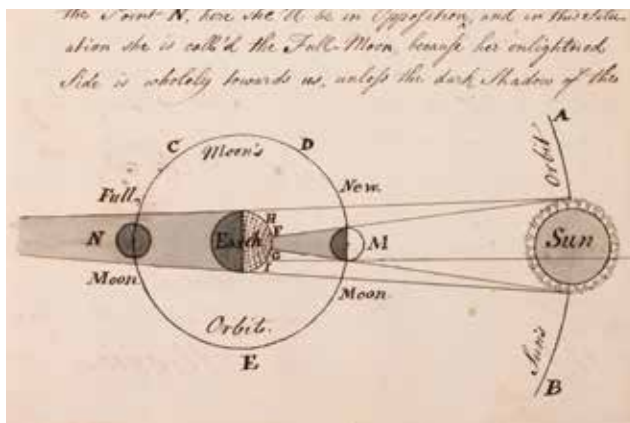 the Point N, here she'll be in Opposition, and in this Situ-
ation she is call'd the Full-Moon, because her enlightned
Side is wholely towards us, unless the dark Shadow of the
A
C
D
Moon's
Orbit
Full
New
H
F
N
Earth
M
Sun
G
I
Moon
Moon
Orbit.
Sun's
E
B